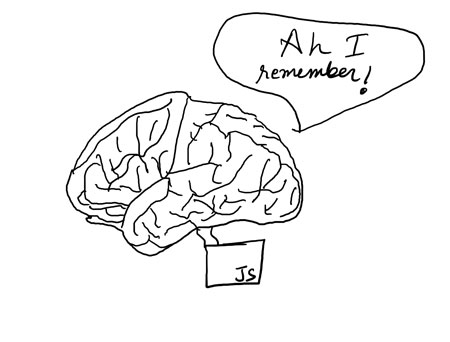 Ah I
remember!
JS